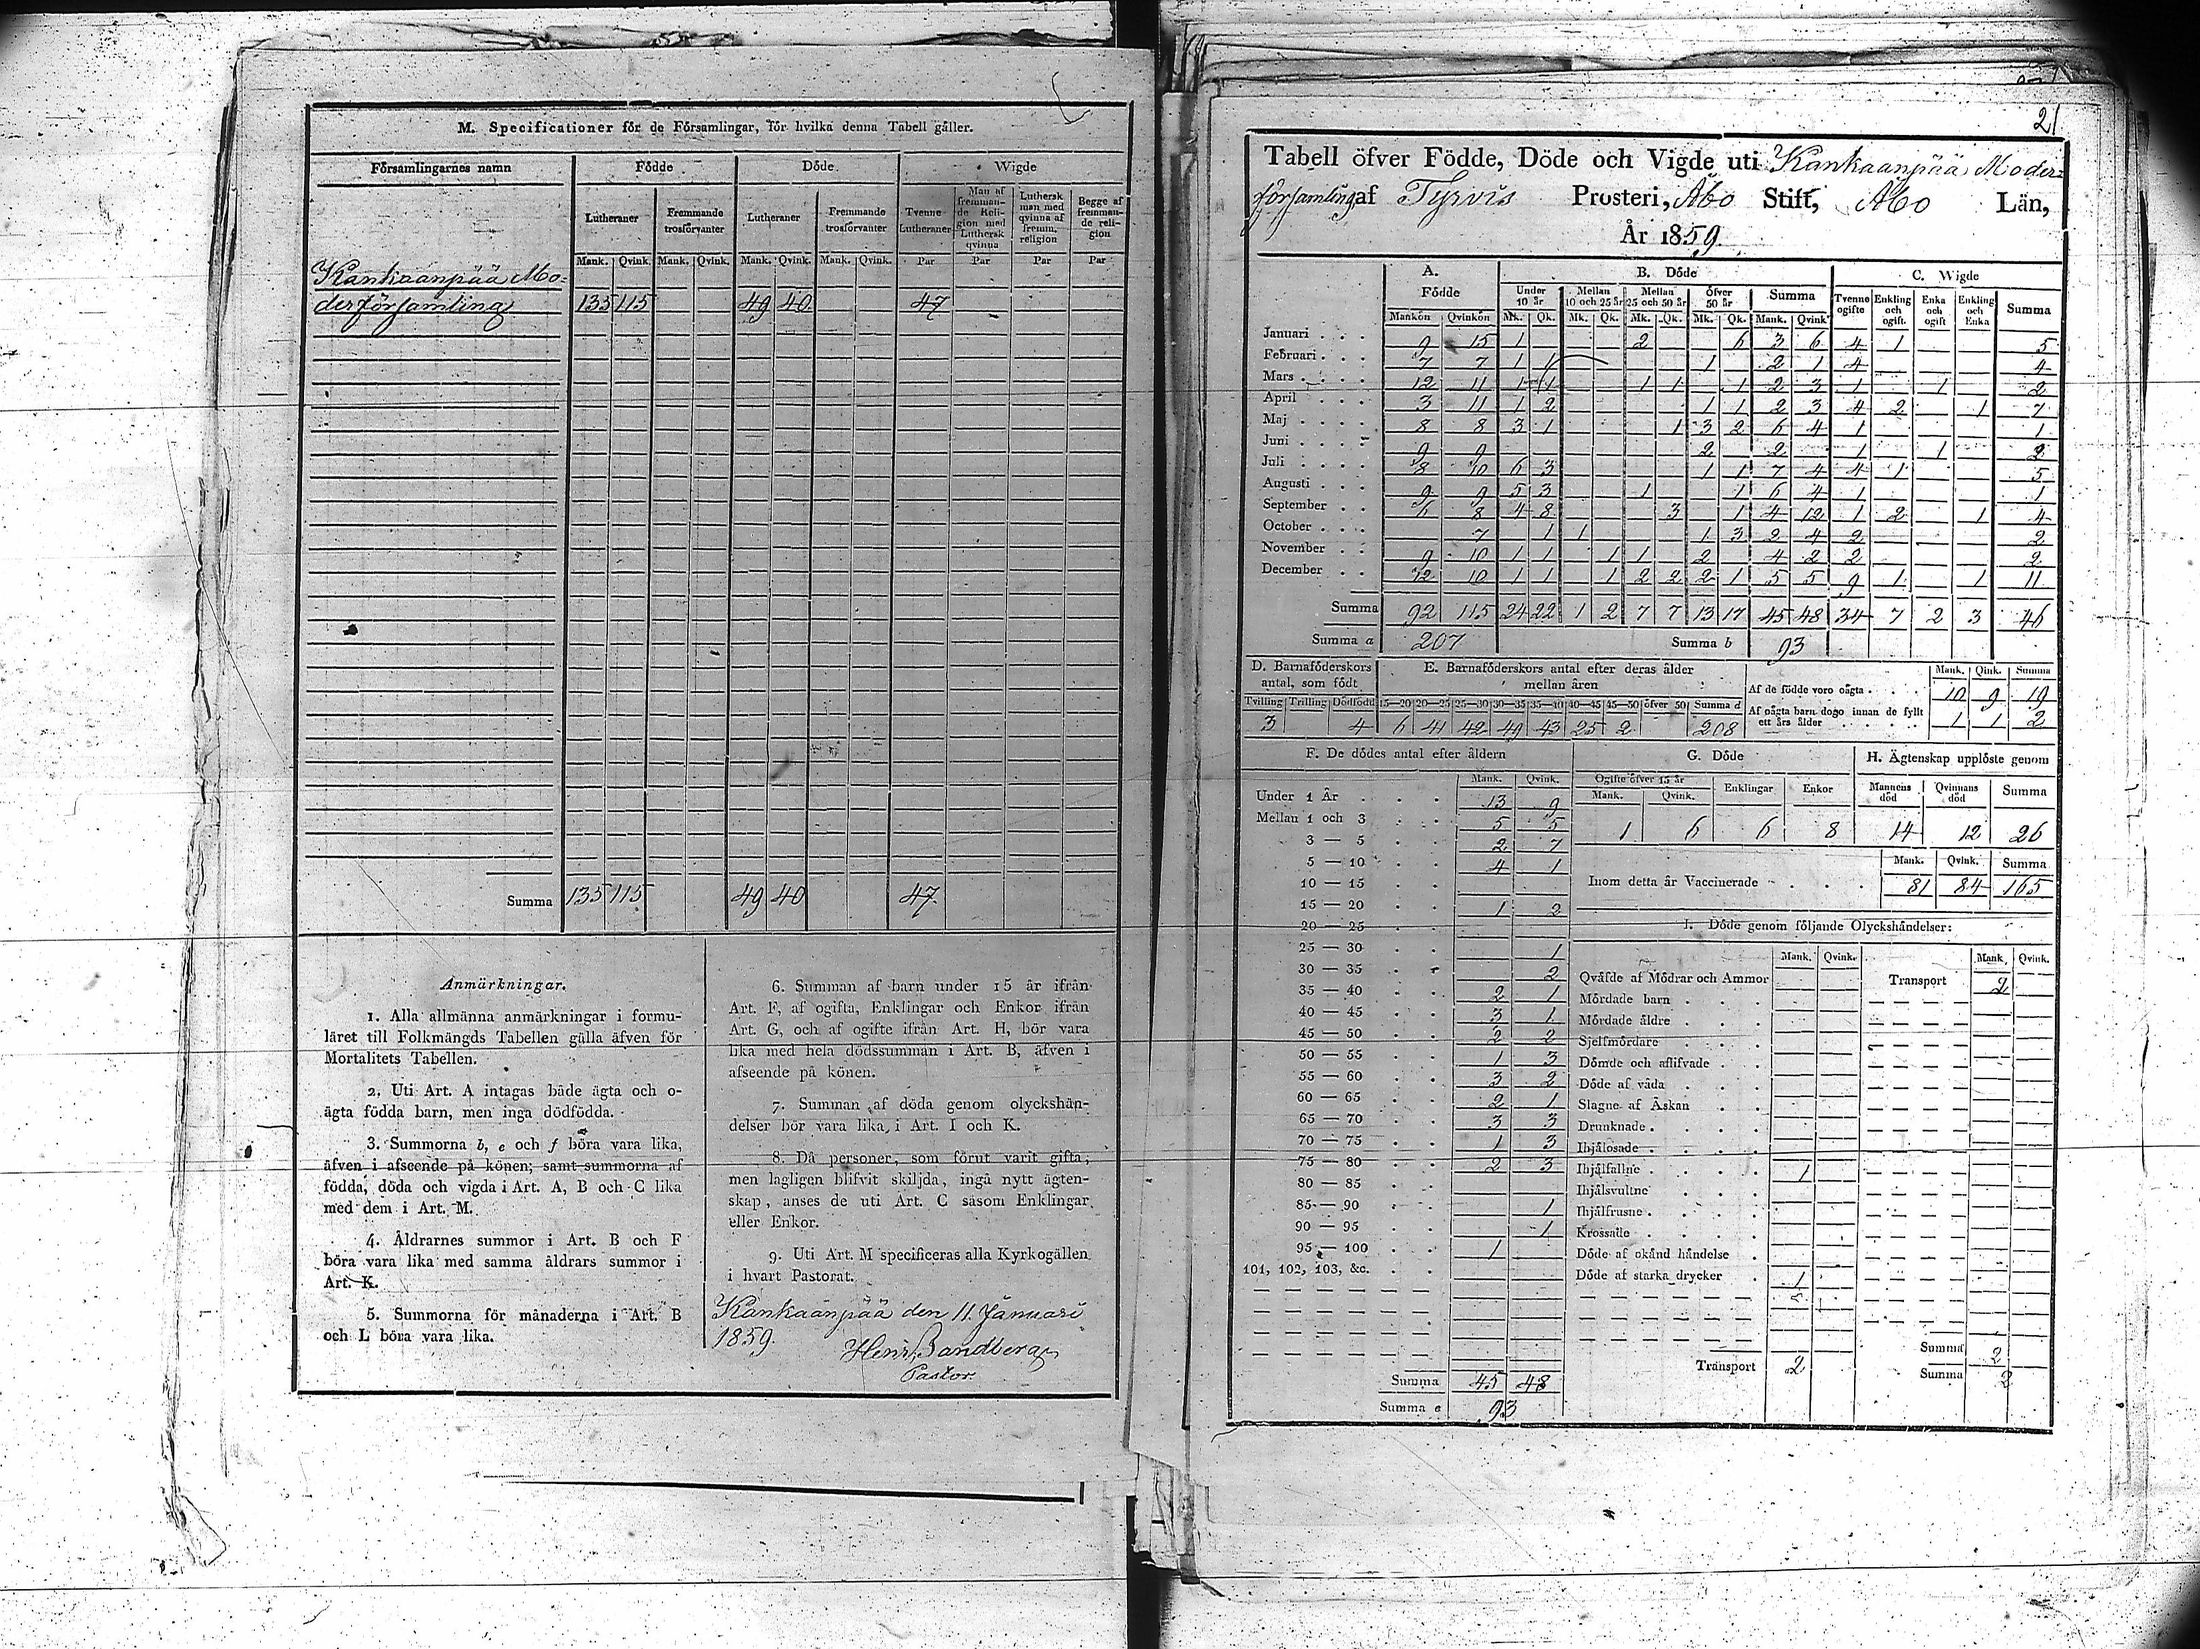 M. Specificationer för de Församlingar, för hvilka denna Tabell gäller.
Församlingarnes namn Födde Döde Wigde
Lutheraner Fremmande trosförvanter Lutheraner Fremmande trosförvanter Tvenne Lutheraner Man af fremmande Religion med Luthersk qvinna Luthersk man med qvinna af fremm. religion Begge af fremmande religion
Mank. Qvink. Mank. Qvink. Mank. Qvink. Mank. Qvink. Par Par Par Par
Kankaanpää Mo=
derförsamling 135 115 49 40 47
Summa 135 115 49 40 47
Anmärkningar.
1. Alla allmänna anmärkningar i formu-
läret till Folkmängds Tabellen gälla äfven för
Mortalitets Tabellen.
2. Uti Art. A intagas både ägta och o-
ägta födda barn, men inga dödfödda.
3. Summorna b, e och f böra vara lika,
äfven i afseende på könen; samt summorna af
födda, döda och vigda i Art. A, B och C lika
med dem i Art. M.
4. Åldrarnes summor i Art. B och F
böra vara lika med samma åldrars summor i
Art. K.
5. Summorna för månaderna i Art. B
och L böra vara lika.
6. Summan af barn under 15 år ifrån
Art. F, af ogifta, Enklingar och Enkor ifrån
Art. G, och af ogifte ifrån Art. H, bör vara
lika med hela dödssumman i Art. B, äfven i
afseende på könen.
7. Summan af döda genom olyckshän-
delser bör vara lika i Art. I och K.
8. Då personer, som förut varit gifta,
men lagligen blifvit skiljda, ingå nytt ägten-
skap, anses de uti Art. C såsom Enklingar
eller Enkor.
9. Uti Art. M specificeras alla Kyrkogällen
i hvart Pastorat.
Kankaanpää den 11 Januari
1859.
Henr. Sandberg
Pastor.
21
Tabell öfver Födde, Döde och Vigde uti Kankaanpää Moder=
församling af Tyrvis Prosteri, Åbo Stift, Åbo Län,
År 1859.
A. Födde B. Döde C. Wigde
Under 10 år Mellan 10 och 25 år Mellan 25 och 50 år Öfver 50 år Summa Tvenne ogifte Enkling och ogift Enka och ogift Enkling och Enka Summa
Mankön Qvinkön Mk. Qk. Mk. Qk. Mk. Qk. Mk. Qk. Mank. Qvink.
Januari 9 15 1 2 6 3 6 4 1 5
Februari 7 7 1 1 1 2 1 4 4
Mars 12 11 1 1 1 1 1 2 3 1 1 2
April 3 11 1 2 1 1 2 3 4 2 1 7
Maj 8 8 3 1 1 3 2 6 4 1 1
Juni 9 9 2 2 1 1 2
Juli 8 10 6 3 1 1 7 4 4 1 5
Augusti 9 9 5 3 1 1 6 4 1 1
September 6 8 4 8 3 1 4 12 1 2 1 4
October 7 1 1 1 3 2 4 2 2
November 9 10 1 1 1 1 2 4 2 2 2
December 12 10 1 1 1 2 2 2 1 5 5 9 1 1 11
Summa 92 115 24 22 1 2 7 7 13 17 45 48 34 7 2 3 46
Summa a 207 Summa b 93
D. Barnaföderskors antal, som födt
Tvilling Trilling Dödfödd
3 4
E. Barnaföderskors antal efter deras ålder mellan åren
15—20 20—25 25—30 30—35 35—40 40—45 45—50 öfver 50 Summa d
6 41 42 49 43 25 2 208
Mank. Qink. Summa
Af de födde voro oägta 10 9 19
Af oägta barn dogo innan de fyllt ett års ålder 1 1 2
F. De dödes antal efter åldern
Mank. Qvink.
Under 1 År 13 9
Mellan 1 och 3 5 5
3 — 5 2 7
5 — 10 4 1
10 — 15
15 — 20 1 2
20 — 25
25 — 30 1
30 — 35 2
35 — 40 2 1
40 — 45 3 1
45 — 50 2 2
50 — 55 1 3
55 — 60 3 2
60 — 65 2 1
65 — 70 3 3
70 — 75 1 3
75 — 80 2 3
80 — 85
85 — 90 1
90 — 95 1
95 — 100 1
101, 102, 103, &c.
Summa 45 48
Summa e 93
G. Döde
Ogifte öfver 15 år Enklingar Enkor
Mank. Qvink.
1 6 6 8
H. Ägtenskap upplöste genom
Mannens död Qvinnans död Summa
14 12 26
Mank. Qvink. Summa
Inom detta år Vaccinerade 81 84 165
I. Döde genom följande Olyckshändelser:
Mank. Qvink. Mank. Qvink.
Qväfde af Mödrar och Ammor Transport 2
Mördade barn
Mördade äldre
Sjelfmördare
Dömde och aflifvade
Döde af våda
Slagne af Åskan
Drunknade
Ihjälosade
Ihjälfallne 1
Ihjälsvultne
Ihjälfrusne
Krossade
Döde af okänd händelse
Döde af starka drycker 1
Summa 2
Transport 2 Summa 2